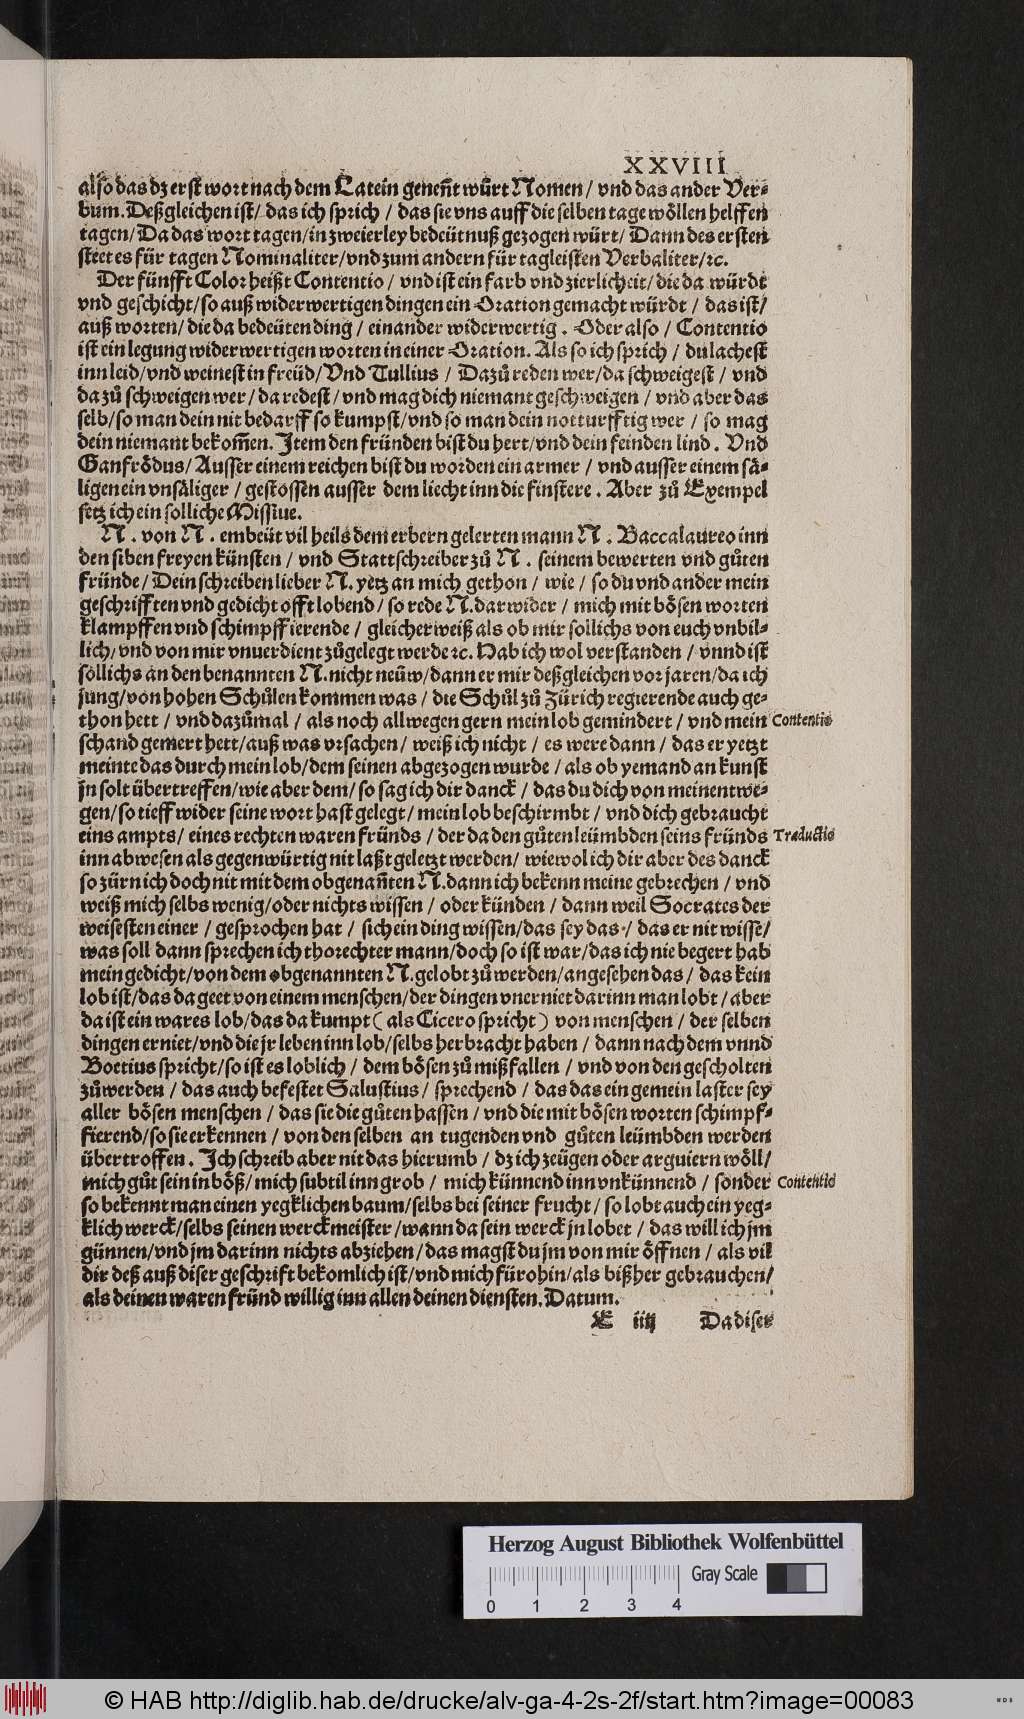 XXVIII
also das dz erst wort nach dem Latein geneñt wuͤrt Nomen / vnd das ander Ver⸗
bum. Deßgleichen ist / das ich sprich / das sie vns auff die selben tage woͤllen helffen
tagen / Da das wort tagen / in zweierley bedeütnuß gezogen würt / Dann des ersten
steet es für tagen Nominaliter / vnd zum andern für tagleisten Verbaliter / ꝛc.
Der fünfft Color heißt Contentio / vnd ist ein farb vnd zierlicheit / die da würdt
vnd geschicht / so auß widerwertigen dingen ein Oration gemacht würdt / das ist /
auß worten / die da bedeüten ding / einander widerwertig . Oder also / Contentio
ist ein legung widerwertigen worten in einer Oration. Als so ich sprich / du lachest
inn leid / vnd weinest in freüd / Vnd Tullius / Dazuͦ reden wer / da schweigest / vnd
da zuͦ schweigen wer / da redest / vnd mag dich niemant geschweigen / vnd aber das
selb / so man dein nit bedarff so kumpst / vnd so man dein notturfftig wer / so mag
dein niemant bekom̃en. Item den fründen bist du hert / vnd dein feinden lind . Vnd
Ganfroͤdus / Ausser einem reichen bist du worden ein armer / vnd ausser einem saͤ⸗
ligen ein vnsaͤliger / gestossen ausser dem liecht inn die finstere . Aber zuͦ Exempel
setz ich ein solliche Missiue.
N . von N . embeüt vil heils dem erbern gelerten mann N . Baccalaureo inn
den siben freyen künsten / vnd Stattschreiber zuͦ N . seinem bewerten vnd guͦten
fründe / Dein schreiben lieber N. yetz an mich gethon / wie / so du vnd ander mein
geschrifften vnd gedicht offt lobend / so rede N. darwider / mich mit boͤsen worten
klampffen vnd schimpffierende / gleicher weiß als ob mir sollichs von euch vnbil⸗
lich / vnd von mir vnuerdient zuͦgelegt werde ꝛc. Hab ich wol verstanden / vnnd ist
sollichs an den benannten N. nicht neüw / dann er mir deßgleichen vor jaren / da ich
jung / von hohen Schuͦlen kommen was / die Schuͦl zuͦ Zürich regierende auch ge⸗
thon hett / vnd dazuͦmal / als noch allwegen gern mein lob gemindert / vnd mein Contentio
schand gemert hett / auß was vrsachen / weiß ich nicht / es were dann / das er yetzt
meinte das durch mein lob / dem seinen abgezogen wurde / als ob yemand an kunst
jn solt übertreffen / wie aber dem / so sag ich dir danck / das du dich von meinentwe⸗
gen / so tieff wider seine wort hast gelegt / mein lob beschirmbt / vnd dich gebraucht
eins ampts / eines rechten waren fründs / der da den guͦten leümbden seins fründs Traductio
inn abwesen als gegenwürtig nit laßt geletzt werden / wiewol ich dir aber des danck
so zürn ich doch nit mit dem obgenañten N. dann ich bekenn meine gebrechen / vnd
weiß mich selbs wenig / oder nichts wissen / oder künden / dann weil Socrates der
weisesten einer / gesprochen hat / sich ein ding wissen / das sey das / das er nit wisse /
was soll dann sprechen ich thorechter mann / doch so ist war / das ich nie begert hab
mein gedicht / von dem obgenannten N. gelobt zuͦ werden / angesehen das / das kein
lob ist / das da geet von einem menschen / der dingen vnerniet darinn man lobt / aber
da ist ein wares lob / das da kumpt ( als Cicero spricht ) von menschen / der selben
dingen erniet / vnd die jr leben inn lob / selbs herbracht haben / dann nach dem vnnd
Boetius spricht / so ist es loblich / dem boͤsen zuͦ mißfallen / vnd von den gescholten
zuͦ werden / das auch befestet Salustius / sprechend / das das ein gemein laster sey
aller boͤsen menschen / das sie die guͦten hassen / vnd die mit boͤsen worten schimpf⸗
fierend / so sie erkennen / von den selben an tugenden vnd guͦten leümbden werden
übertroffen . Ich schreib aber nit das hierumb / dz ich zeügen oder arguiern woͤll /
mich guͦt sein in boͤß / mich subtil inn grob / mich künnend inn vnkünnend / sonder Contentio
so bekennt man einen yegklichen baum / selbs bei seiner frucht / so lobt auch ein yeg⸗
klich werck / selbs seinen werckmeister / wann da sein werck jn lobet / das will ich jm
günnen / vnd jm darinn nichts abziehen / das magst du jm von mir oͤffnen / als vil
dir deß auß diser geschrift bekomlich ist / vnd mich fürohin / als bißher gebrauchen /
als deinen waren fründ willig inn allen deinen diensten. Datum.
E iiij Da diser
Herzog August Bibliothek Wolfenbüttel
Gray Scale
0 1 2 3 4
© HAB http://diglib.hab.de/drucke/alv-ga-4-2s-2f/start.htm?image=00083